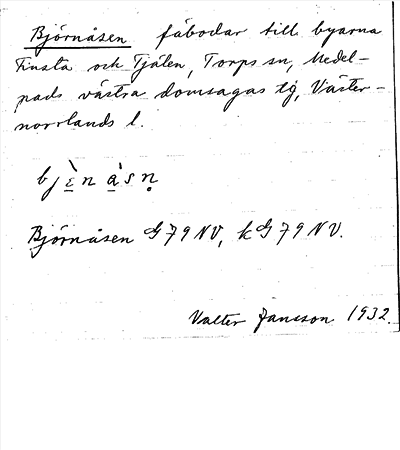 Björnåsen fäbodar till byarna
och Tjälen, Torps sn, Medel-
pads västra domsagas tg, Väster-
norrlands l.
bjὲn àsn̥
Björnåsen G 79 NV, kG 79 NV.
Valter Jansson 1932.